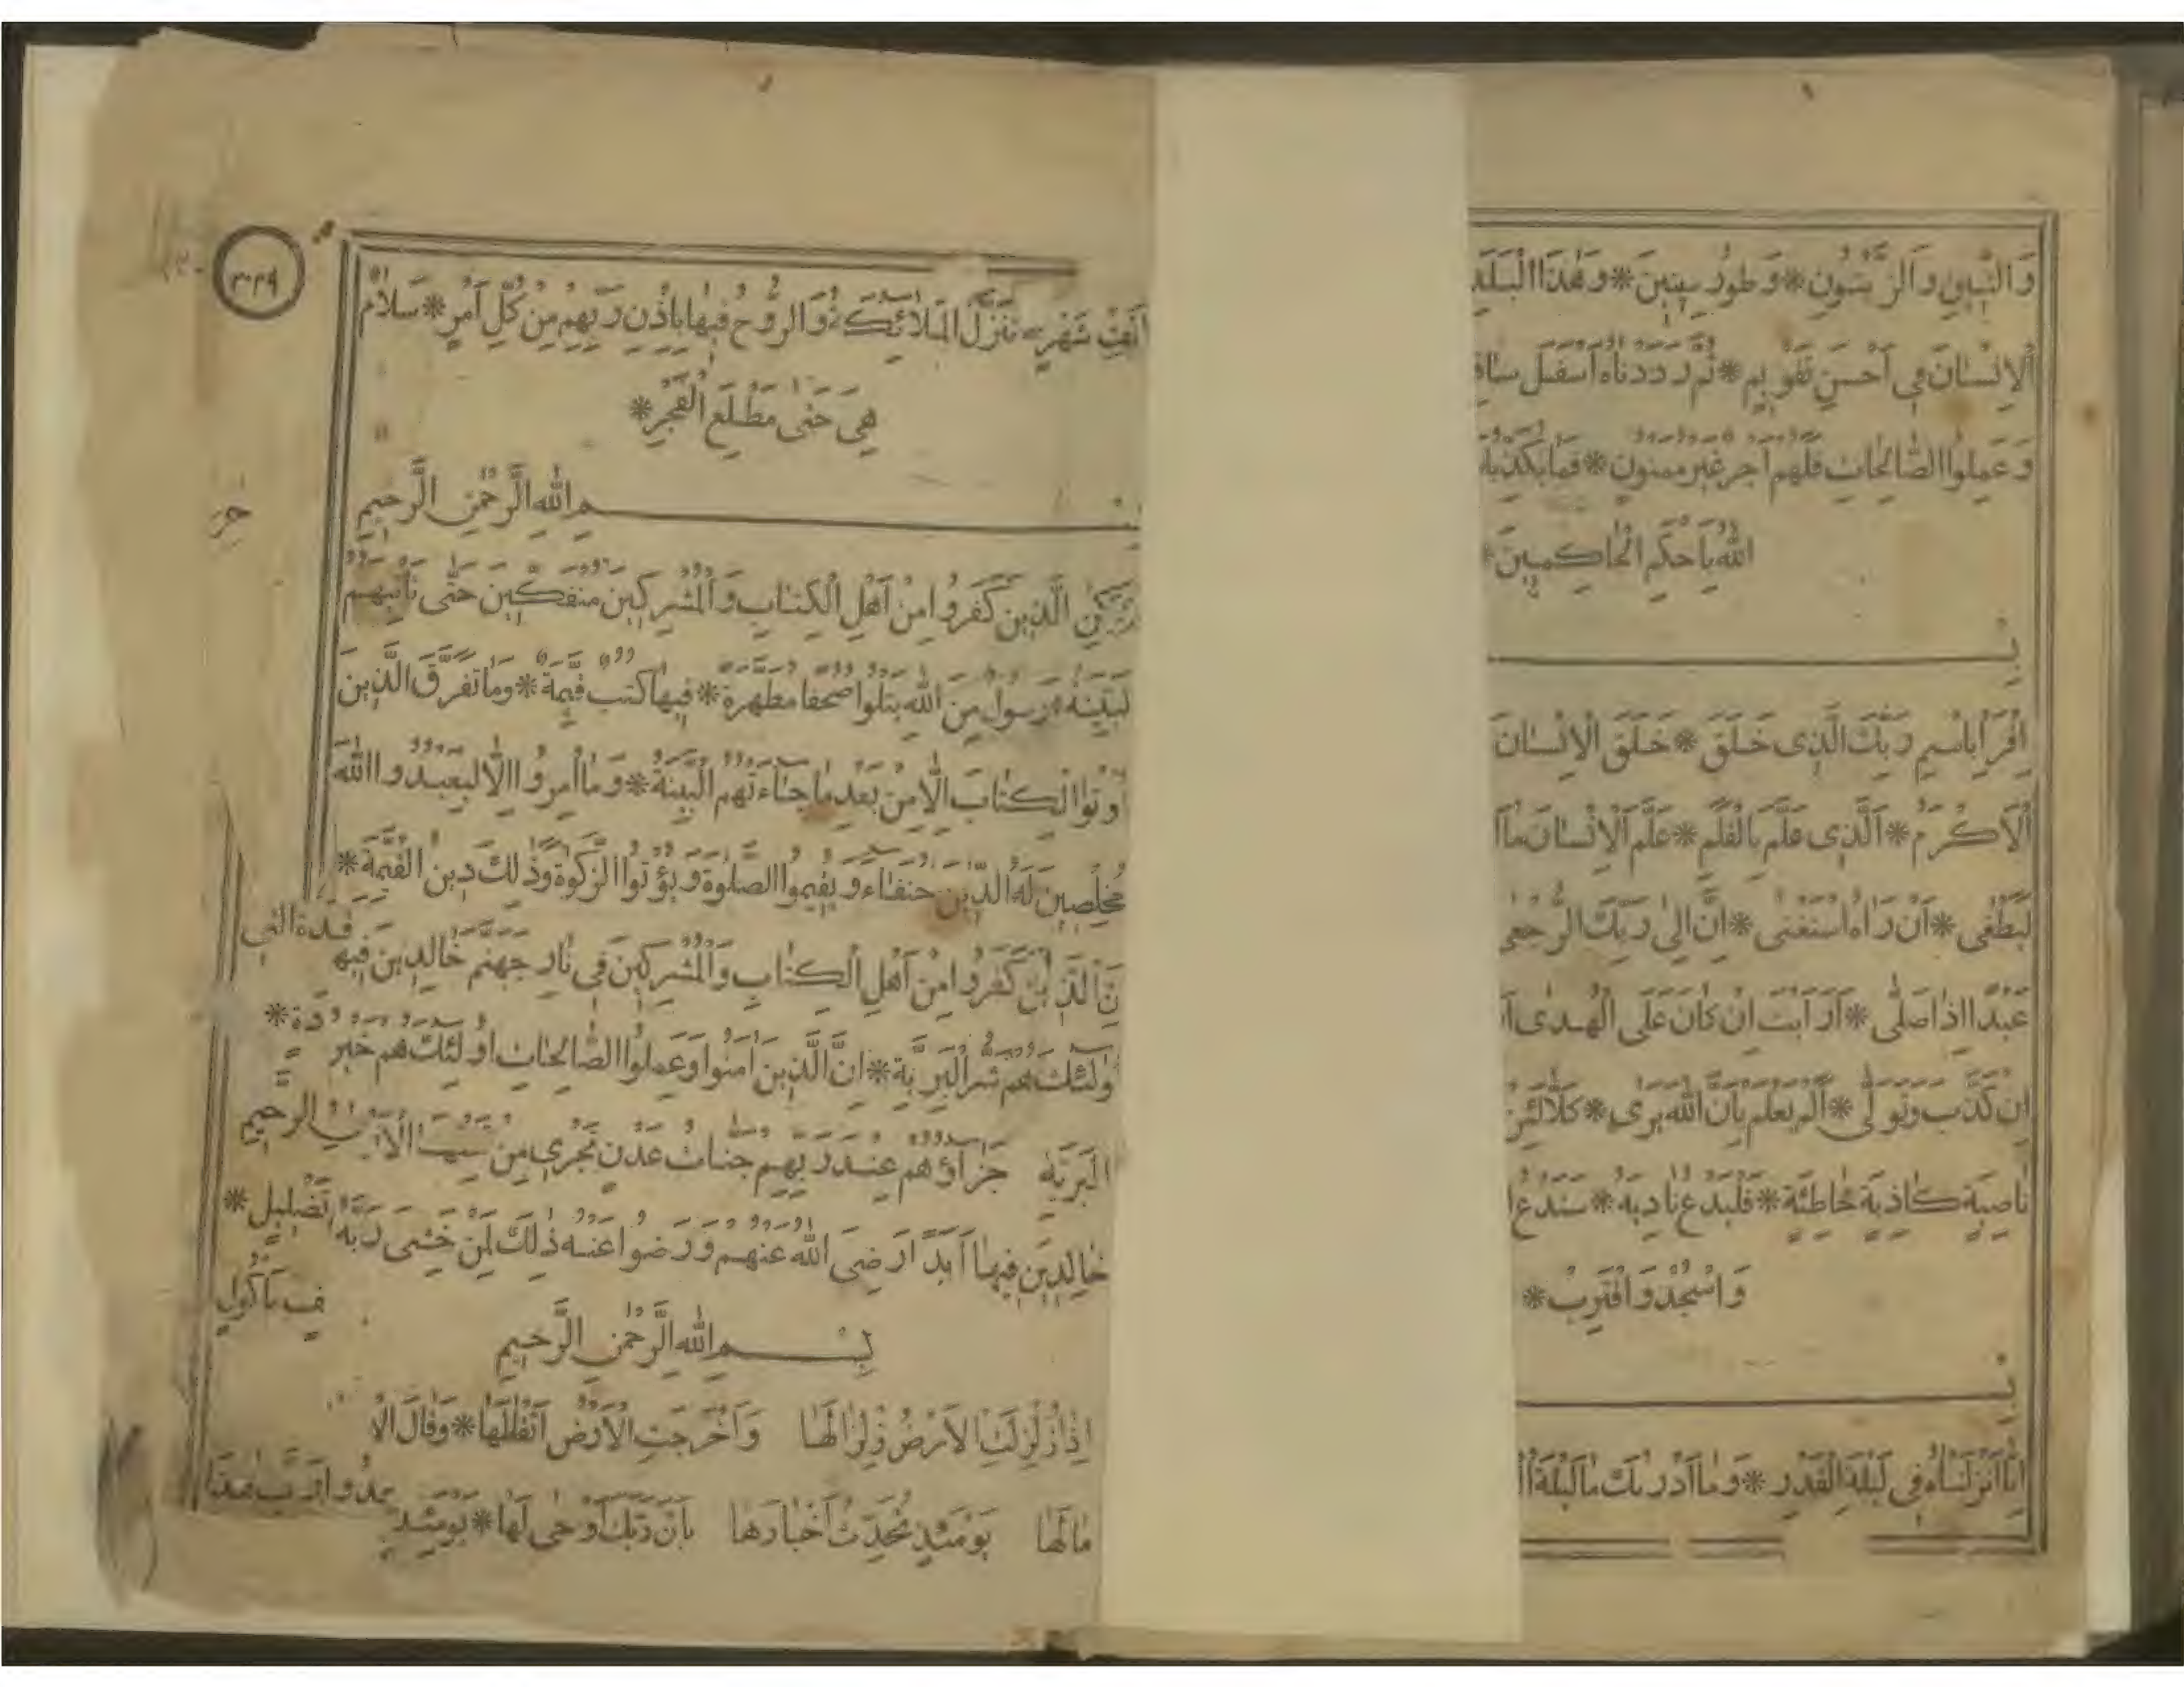 وَالتّينِ وَالزَّيْتُونِ * وَطُورِ سينينَ * وَهٰذَا الْبَلَدِ
الْاِنْسٰانَ في اَحْسَنِ تَقْويمٍ * ثُمَّ رَدَدْنٰاهُ اَسْفَلَ سٰافِ
وَعَمِلُوا الصّٰالِحٰاتِ فَلَهُمْ اَجْرٌ غَيْرُ مَمْنُونٍ * فَمٰا يُكَذِّبُ
اللّٰهُ بِاَحْكَمِ الْحٰاكِمينَ *
بِسْـ
اِقْرَأْ بِاسْمِ رَبِّكَ الَّذى خَلَقَ * خَلَقَ الْاِنْسٰانَ
الْاَكْرَمُ * اَلَّذى عَلَّمَ بِالْقَلَمِ * عَلَّمَ الْاِنْسٰانَ مٰا
لَيَطْغى * اَنْ رَاٰهُ اسْتَغْنى * اِنَّ اِلىٰ رَبِّكَ الرُّجْعى
عَبْدًا اِذٰا صَلّٰى * اَرَاَيْتَ اِنْ كٰانَ عَلَى الْهُدٰى
اِنْ كَذَّبَ وَتَوَلّٰى * اَلَمْ يَعْلَمْ بِاَنَّ اللّٰهَ يَرى * كَلّٰا لَئِنْ
نٰاصِيَةٍ كٰاذِبَةٍ خٰاطِئَةٍ * فَلْيَدْعُ نٰادِيَهُ * سَنَدْعُ
وَاسْجُدْ وَاقْتَرِبْ *
بِسْـ
اِنّٰا اَنْزَلْنٰاهُ في لَيْلَةِ الْقَدْرِ * وَمٰا اَدْرٰيكَ مٰا لَيْلَةُ
اَلْفِ شَهْرٍ * تَنَزَّلُ الْمَلٰائِكَةُ وَالرُّوحُ فيهٰا بِاِذْنِ رَبِّهِمْ مِنْ كُلِّ اَمْرٍ * سَلٰامٌ
هِيَ حَتّٰى مَطْلَعِ الْفَجْرِ *
ـمِ اللّٰهِ الرَّحْمٰنِ الرَّحيمِ
الَّذينَ كَفَرُوا مِنْ اَهْلِ الْكِتٰابِ وَالْمُشْرِكينَ مُنْفَكّينَ حَتّٰى تَأْتِيَهُمُ
لْبَيِّنَةُ * رَسُولٌ مِنَ اللّٰهِ يَتْلُوا صُحُفًا مُطَهَّرَةً * فيهٰا كُتُبٌ قَيِّمَةٌ * وَمٰا تَفَرَّقَ الَّذينَ
اُوتُوا الْكِتٰابَ اِلّٰا مِنْ بَعْدِ مٰا جٰاءَتْهُمُ الْبَيِّنَةُ * وَمٰا اُمِرُوا اِلّٰا لِيَعْبُدُوا اللّٰهَ
مُخْلِصينَ لَهُ الدّينَ حُنَفٰاءَ وَيُقيمُوا الصَّلٰوةَ وَيُؤْتُوا الزَّكٰوةَ وَذٰلِكَ دينُ الْقَيِّمَةِ *
نَّ الَّذينَ كَفَرُوا مِنْ اَهْلِ الْكِتٰابِ وَالْمُشْرِكينَ في نٰارِ جَهَنَّمَ خٰالِدينَ فيهٰ قَدَةُ الَّتي
وُلٰئِكَ هُمْ شَرُّ الْبَرِيَّةِ * اِنَّ الَّذينَ اٰمَنُوا وَعَمِلُوا الصّٰالِحٰاتِ اُولٰئِكَ هُمْ خَيْرُ دَةٍ *
الْبَرِيَّةِ جَزٰاؤُهُمْ عِنْدَ رَبِّهِمْ جَنّٰاتُ عَدْنٍ تَجْري مِنْ الرَّحيمِ
خٰالِدينَ فيهٰا اَبَدًا رَضِىَ اللّٰهُ عَنْهُمْ وَرَضُوا عَنْهُ ذٰلِكَ لِمَنْ خَشِىَ رَبَّهُ تَضْليلٍ *
ـفٍ مَأْكُولٍ
بِسْـــمِ اللّٰهِ الرَّحْمٰنِ الرَّحيمِ
اِذٰا زُلْزِلَتِ الْاَرْضُ زِلْزٰالَهٰا وَاَخْرَجَتِ الْاَرْضُ اَثْقٰالَهٰا * وَقٰالَ الْا
مٰا لَهٰا يَوْمَئِذٍ تُحَدِّثُ اَخْبٰارَهٰا بِاَنَّ رَبَّكَ اَوْحٰى لَهٰا * يَوْمَئِذٍ ـبُدُوا رَبَّ هٰذَا